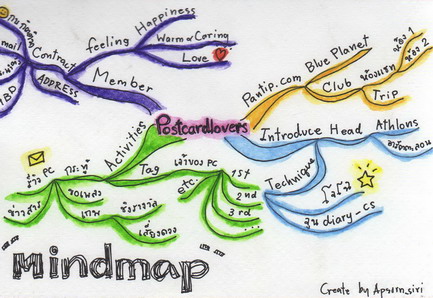 Happiness
feeling
Warm or Caring
Love
Contract
mail
ADDRESS
HBD
Member
Postcardlovers
Pantip.com
Blue Planet
Club
ห้อง 1
ห้อง 2
Trip
Introduce Head
Athlons
Technique
โปโล
diary-cs
Activities
Tag
เจ้าของ PC
etc.
1st
2nd
3rd
...
PC
กระทู้
ข่าวสาร
ขอเพลง
เกม
ชิงรางวัล
Mindmap
Create by Apsorn_siri